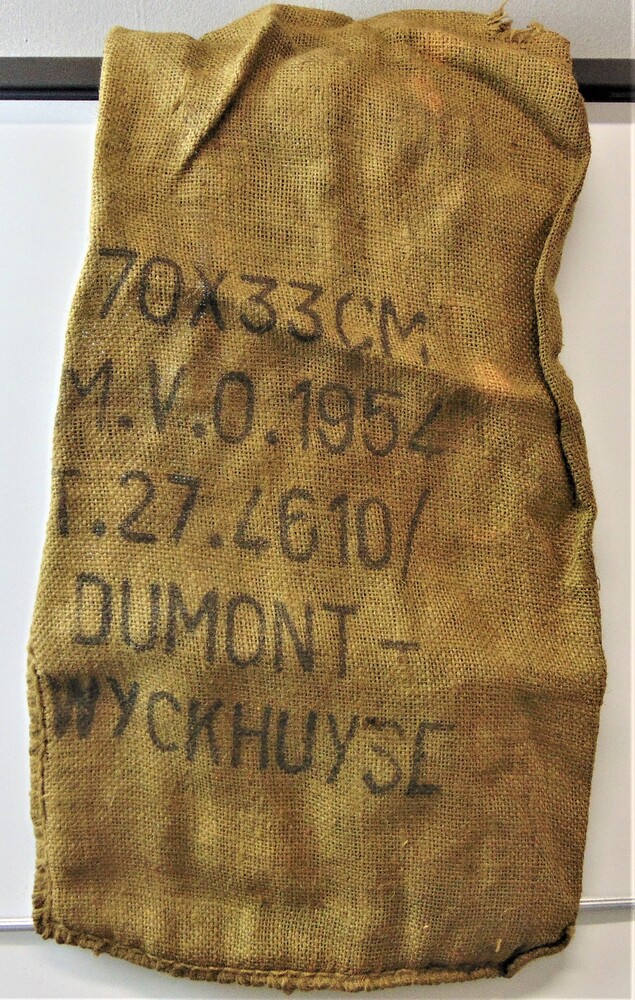 70X33CM
M.V.O.1954
T.27.4610/
DUMONT-
WYCKHUYSE